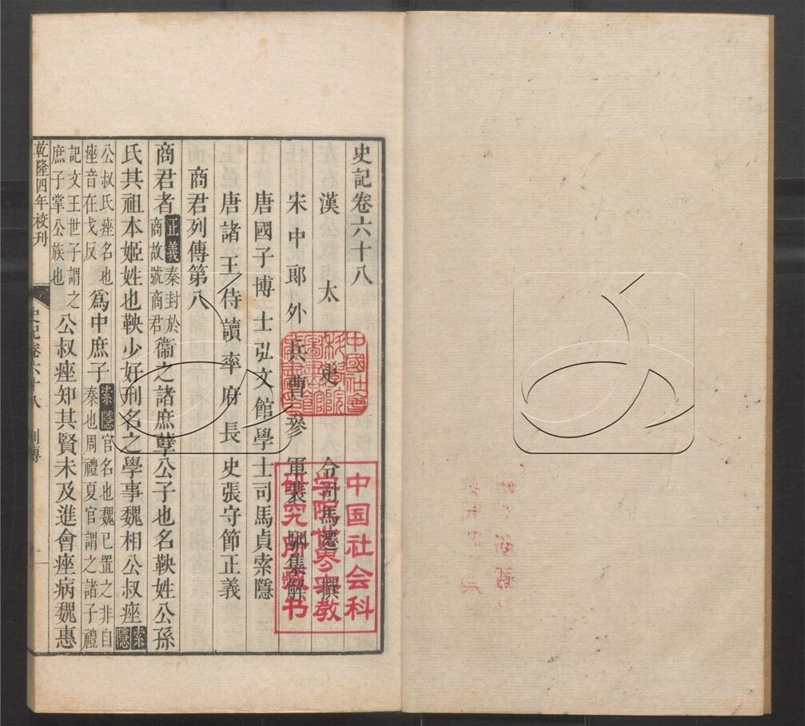 史記卷六十八
漢太史令司馬遷撰
宋中郎外兵曹參軍裴駰集解
唐國子博士弘文館學士司馬貞索隱
唐諸王侍讀率府長史張守節正義
商君列傳第八
商君者正義秦封於商故號商君衞之諸庶孽公子也名鞅姓公孫
氏其祖本姬姓也鞅少好刑名之學事魏相公叔座索隱
公叔氏座名也座音在戈反為中庶子索隱官名也魏已置之非自秦也周禮夏官謂之諸子禮
記文王世子謂之庶子掌公族也公叔座知其賢未及進會座病魏惠
乾隆四年校刊
史記卷六十八 列傳 一
中国社会科
学院世界宗教
研究所藏书